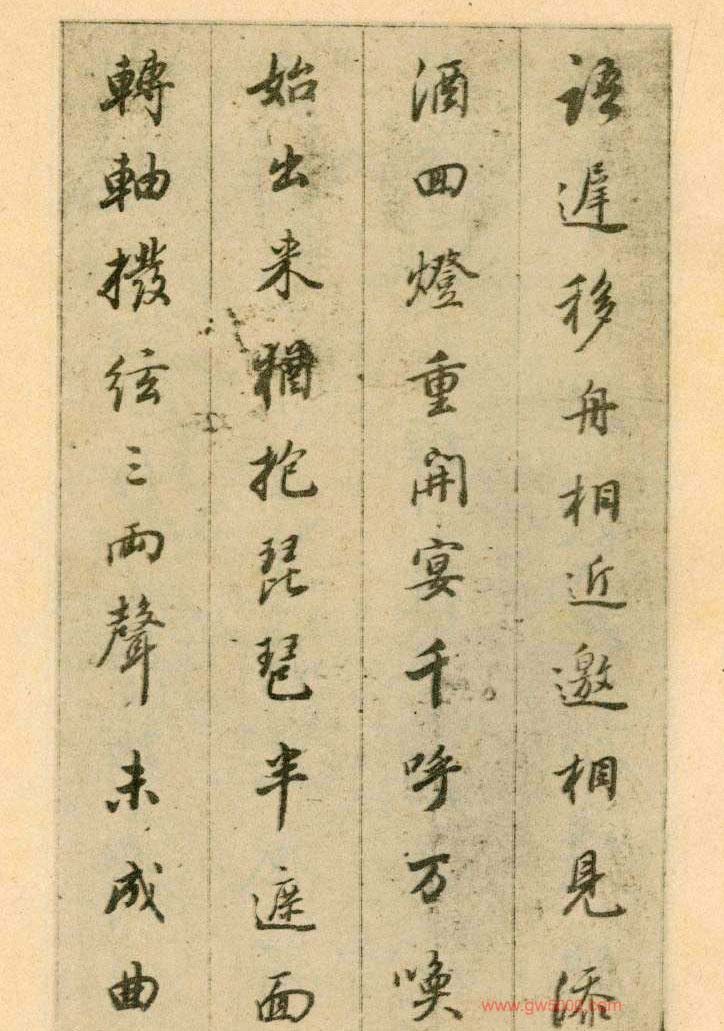 語遲移舟相近邀相見添
酒回燈重開宴千呼万喚
始出来猶抱琵琶半遮面
轉軸撥絃三兩聲未成曲
www.gw5000.com